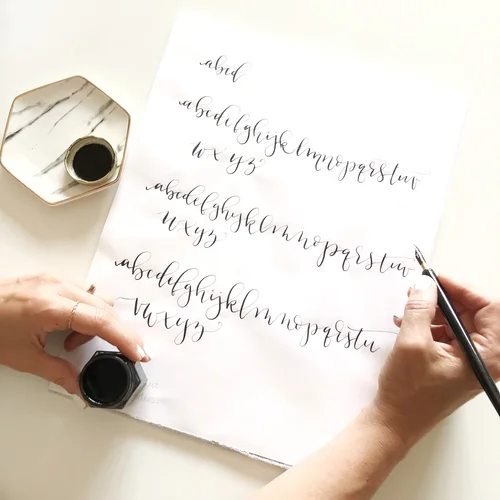 abcd
abcdefghijklmnopqrstuv
wxyz
abcdefghijklmnopqrstuv
wxyz
abcdefghijklmnopqrstu
vwxyz